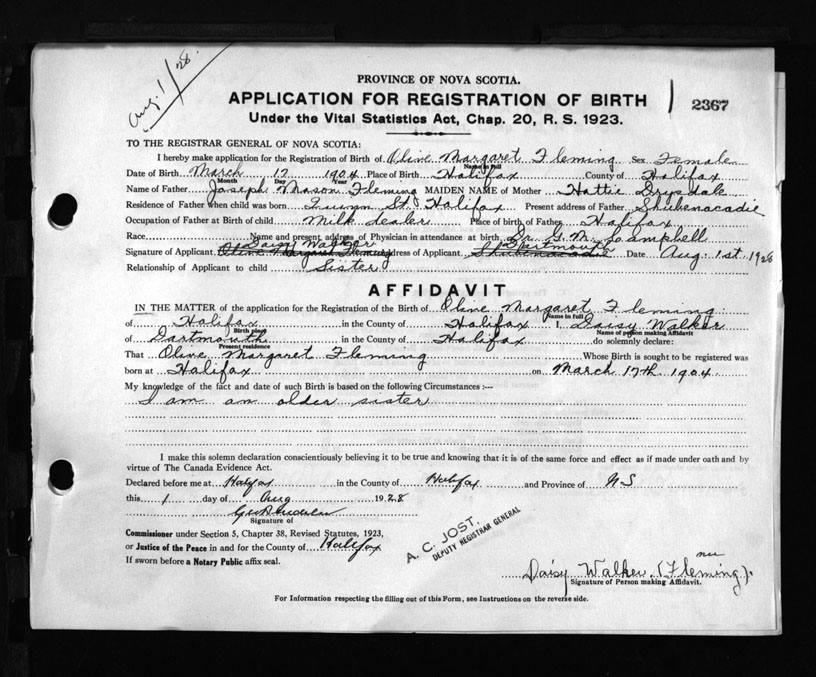 Aug. 1/28.
PROVINCE OF NOVA SCOTIA.
APPLICATION FOR REGISTRATION OF BIRTH
2367
Under the Vital Statistics Act, Chap. 20, R. S. 1923.
TO THE REGISTRAR GENERAL OF NOVA SCOTIA:
I hereby make application for the Registration of Birth of Oline Margaret Fleming Sex Female
Name in full
Date of Birth March 17 1904 Place of Birth Halifax County of Halifax
Month Day Year
Name of Father Joseph Mason Fleming MAIDEN NAME of Mother Hattie Drysdale
Residence of Father when child was born Quinn St. Halifax Present address of Father Shubenacadie
Occupation of Father at Birth of child Milk dealer Place of birth of Father Halifax
Race Name and present address of Physician in attendance at birth Dr. G. M. Campbell
Daisy Walker Dartmouth
Signature of Applicant Oline Margaret Fleming Address of Applicant Shubenacadie Date Aug. 1st. 1928
Relationship of Applicant to child Sister
AFFIDAVIT
IN THE MATTER of the application for the Registration of the Birth of Oline Margaret Fleming
Name in full
of Halifax in the County of Halifax I, Daisy Walker
Birth place Name of person making Affidavit
of Dartmouth in the County of Halifax do solemnly declare:
Present residence
That Oline Margaret Fleming Whose Birth is sought to be registered was
born at Halifax on March 17th. 1904.
My knowledge of the fact and date of such Birth is based on the following Circumstances :—
I am an older sister
I make this solemn declaration conscientiously believing it to be true and knowing that it is of the same force and effect as if made under oath and by
virtue of The Canada Evidence Act.
Declared before me at Halifax in the County of Halifax and Province of N S
this 1 day of Aug 1928
Signature of
Commissioner under Section 5, Chapter 38, Revised Statutes, 1923,
or Justice of the Peace in and for the County of Halifax
If sworn before a Notary Public affix seal.
A. C. JOST.
DEPUTY REGISTRAR GENERAL
nee
Daisy Walker (Fleming).
Signature of Person making Affidavit.
For Information respecting the filling out of this Form, see Instructions on the reverse side.